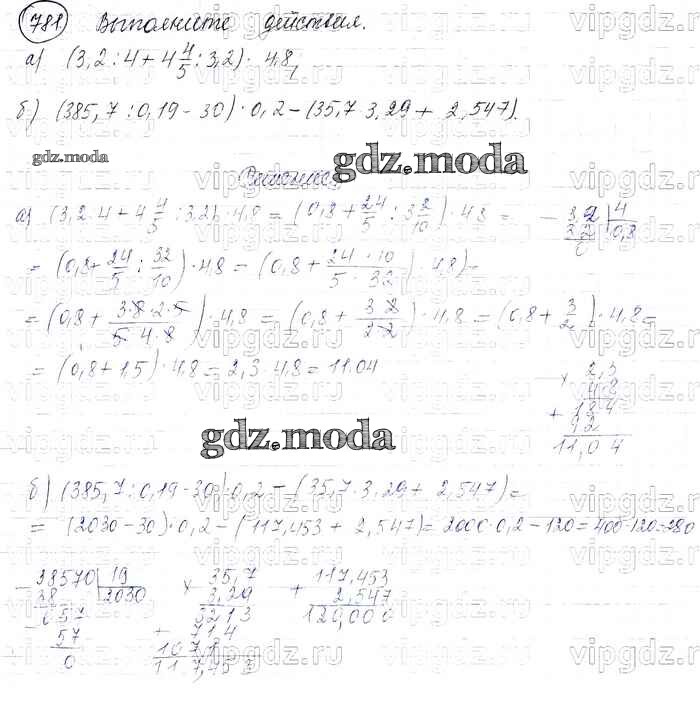 781 Выполните действия.
а) (3,2 : 4 + 4 4/5 : 3,2) · 4,8
б) (385,7 : 0,19 - 30) · 0,2 - (35,7 · 3,29 + 2,547).
gdz.moda gdz.moda
Решение
а) (3,2 : 4 + 4 4/5 : 3,2) · 4,8 = (0,8 + 24/5 : 3 2/10) · 4,8 =
3,2 | 4
3 2 | 0,8
0
= (0,8 + 24/5 : 32/10) · 4,8 = (0,8 + 24 · 10/5 · 32) · 4,8) =
= (0,8 + 3·8·2·5/5·4·8) · 4,8 = (0,8 + 3·2/2·2) · 4,8 = (0,8 + 3/2) · 4,8 =
= (0,8 + 1,5) · 4,8 = 2,3 · 4,8 = 11.04
× 2,3
4,8
+ 184
92
11,04
gdz.moda
б) (385,7 : 0,19 - 30) · 0,2 - (35,7 · 3,29 + 2,547) =
= (2030 - 30) · 0,2 - (117,453 + 2,547) = 2000 · 0,2 - 120 = 400 - 120 = 280
- 38570 | 19 × 35,7 + 117,453
38 | 2030 3,29 2,547
57 3213 120,000
57 + 714
0 1071
117,453
vipgdz.ru